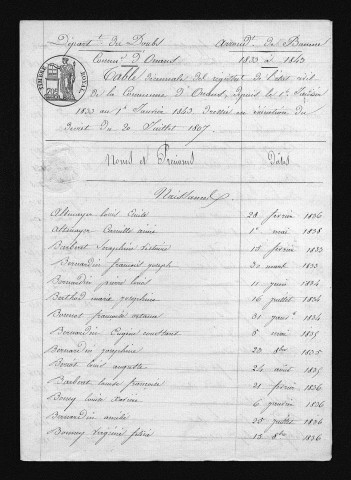 Départt. du Doubs arrondt. de Baume
Commne d'Onans 1833 à 1843
Table décennale des registres de l'état civil
de la Commune d'Onans, depuis le 1er Janvier
1833 au 1er Janvier 1843 dressée en exécution du
décret du 20 Juillet 1807.
TIMBRE ROYAL
Noms et Prénoms Dates
Naissances
louis Emile 28 février 1836
1er mai 1838
Barbret Séraphine victoire 13 février 1833
Bernardin françois joseph 30 mars 1833
Bernardin pierre louis 11 juin 1834
Berthod maria josephine 16 juillet 1834
Bonnet 31 1834
Bernardin Eugène constant 8 mai 1835
Bernardin josephine 20 8bre 1835
louis auguste 24 août 1835
Barbret louise françoise 21 février 1836
Bouny louise 6 janvier 1836
Bernardin amélie 25 juillet 1836
Bonnet virginie 13 8bre 1836